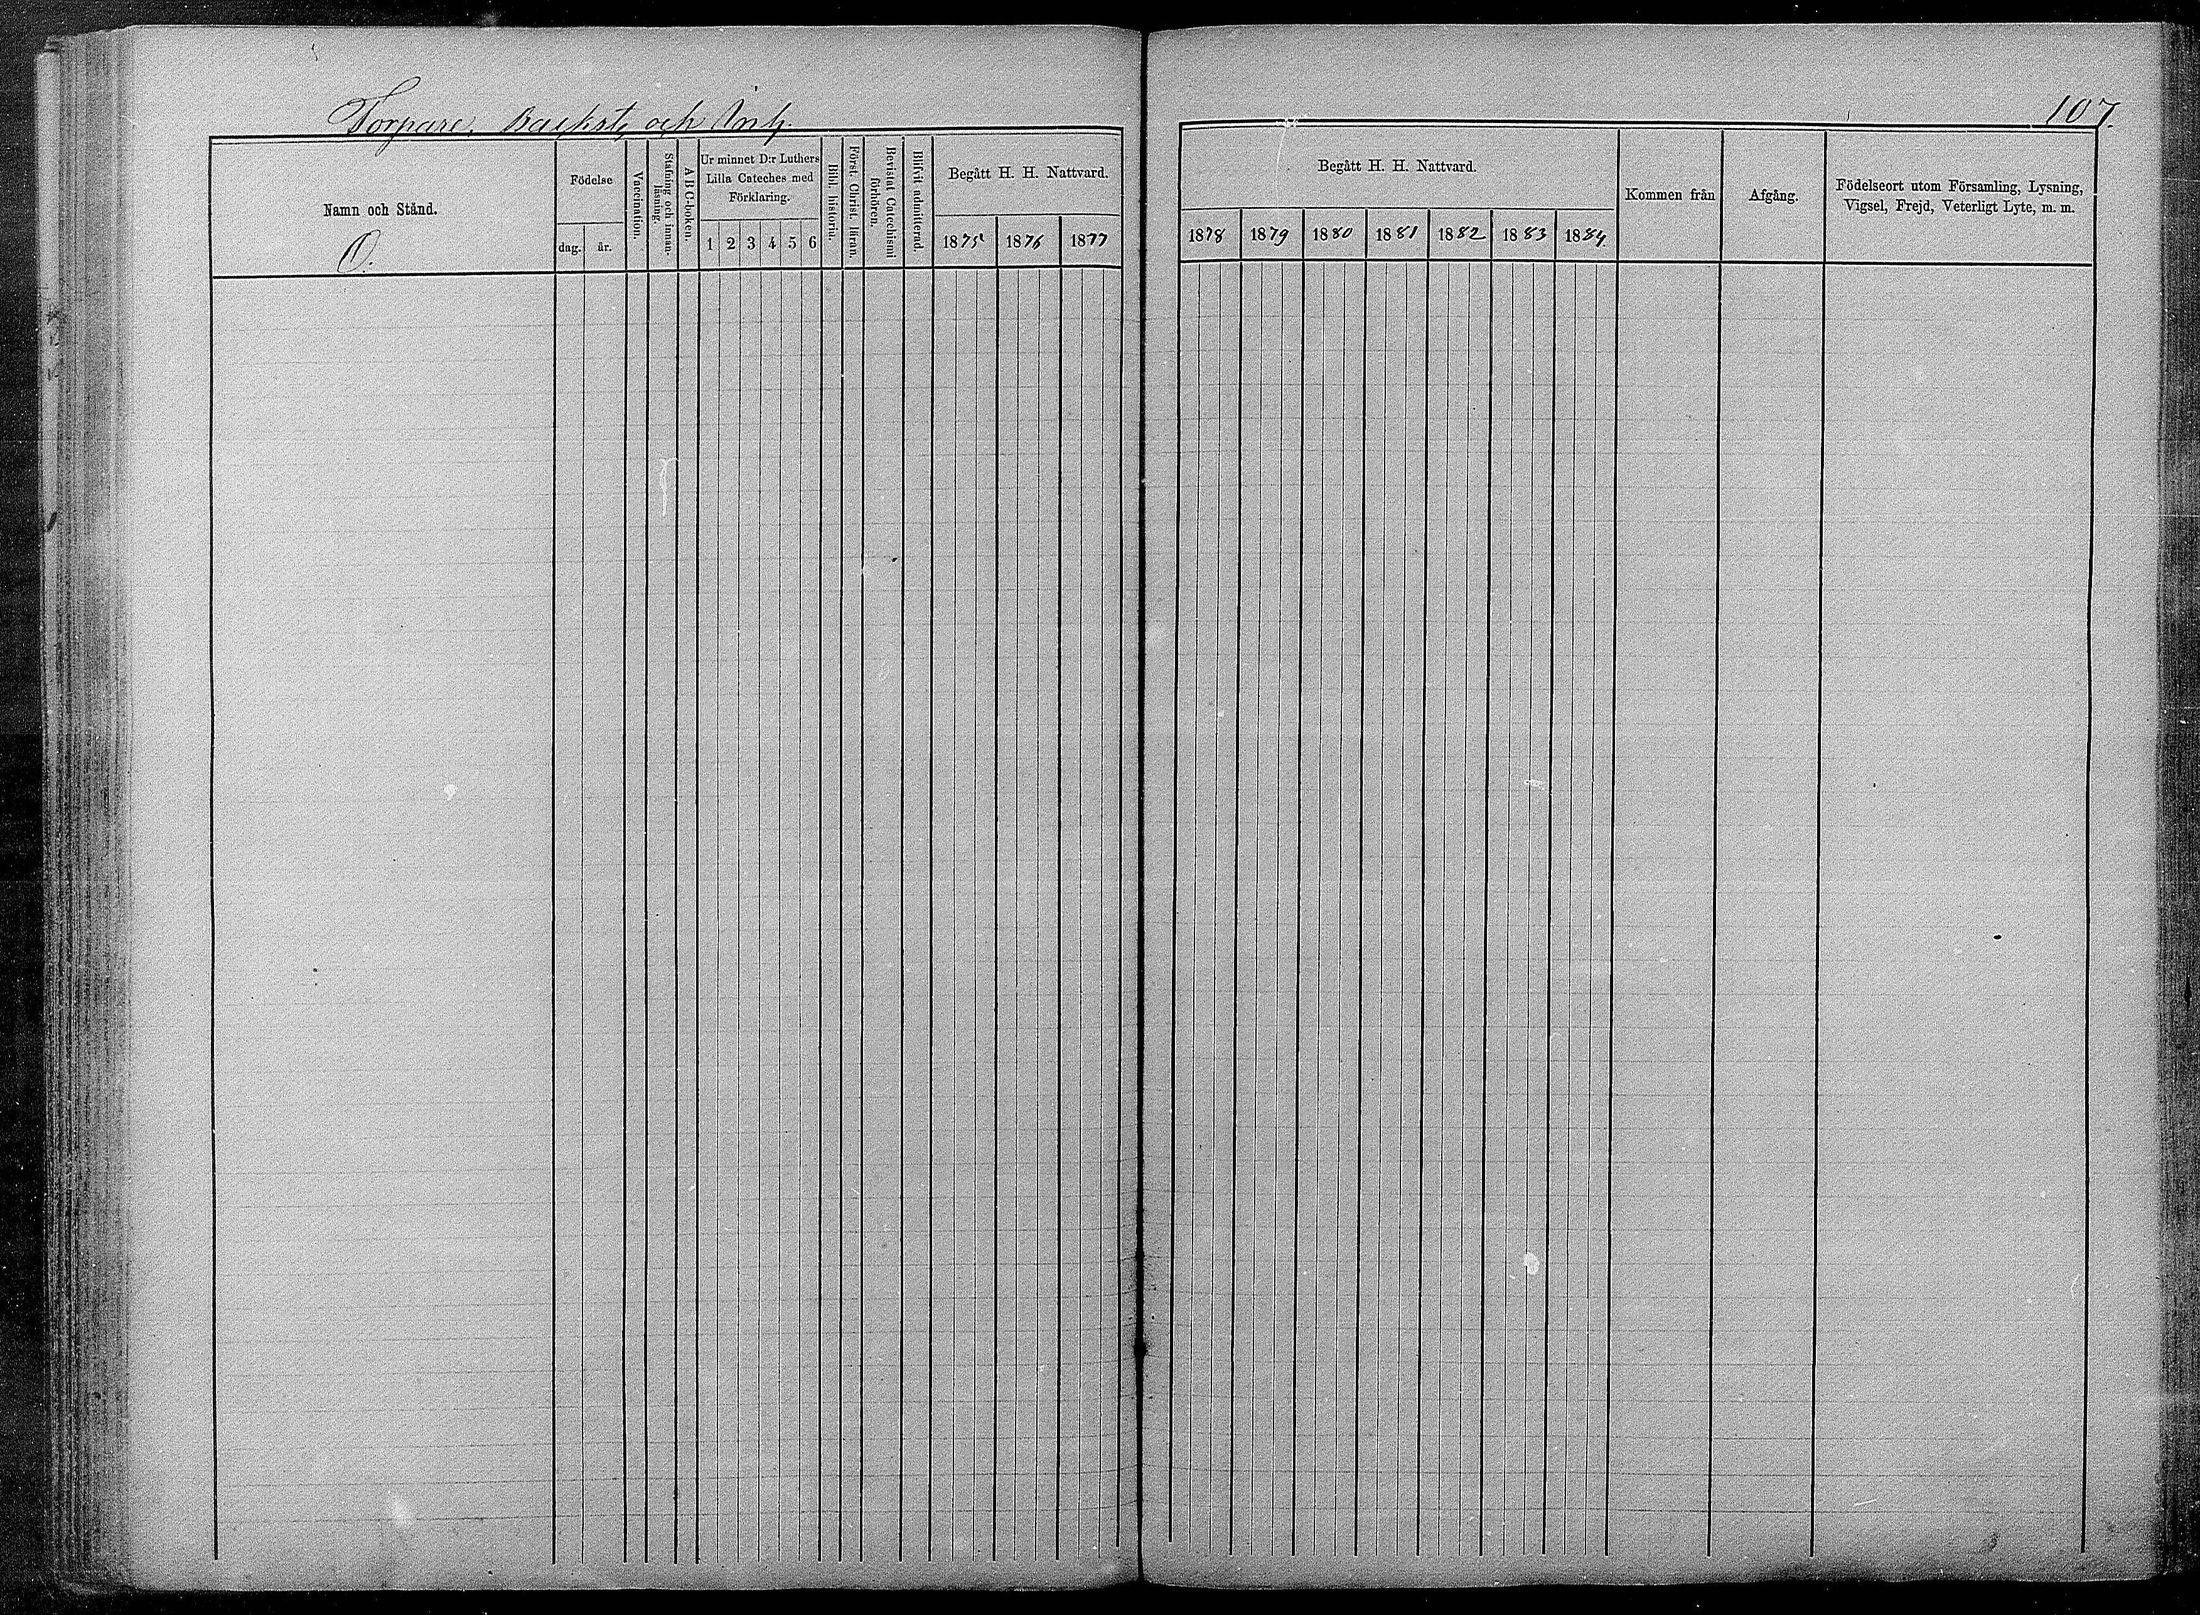 Torpare, Backst, och Inh.
107.
Namn och Stånd.
O.
Födelse
dag. år.
Vaccination.
Stafning och innan-
läsning.
A B C-boken.
Ur minnet D:r Luthers
Lilla Cateches med
Förklaring.
1 2 3 4 5 6
Bibl. historia.
Först. Christ. läran.
Bevistat Catechismi
förhören.
Blifvit admitterad.
Begått H. H. Nattvard.
1875 1876 1877
Begått H. H. Nattvard.
1878 1879 1880 1881 1882 1883 1884
Kommen från
Afgång.
Födelseort utom Församling, Lysning,
Vigsel, Frejd, Veterligt Lyte, m. m.